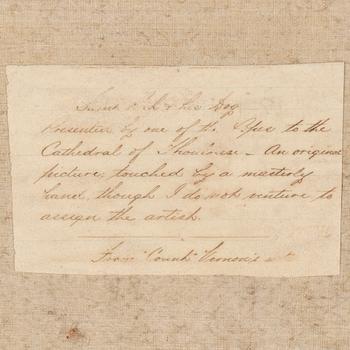 Saint & his Dog
Presented by one of the Popes to the
Cathedral of Thoulouse - An original
picture, touched by a masterly
hand, though I do not venture to
assign the artist.
From "Count" Vernon's